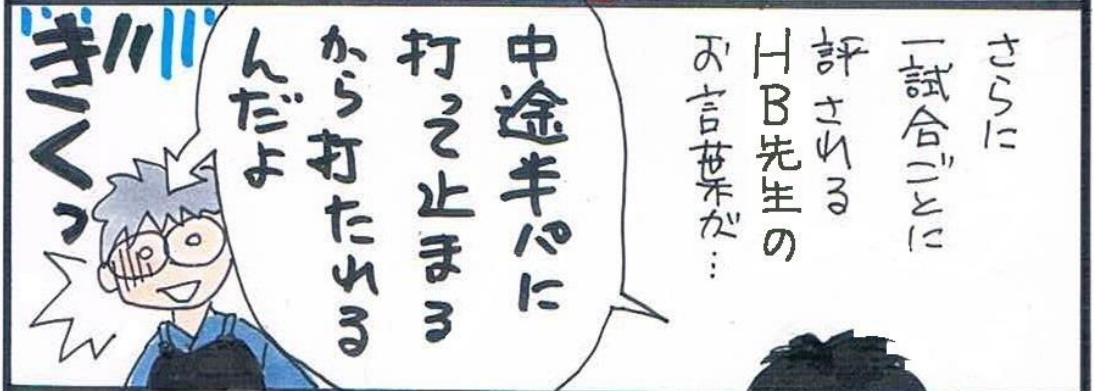 さらに
一試合ごとに
評される
HB先生の
お言葉が…
中途半パに
打って止まる
から打たれる
んだよ
ぎくくっ